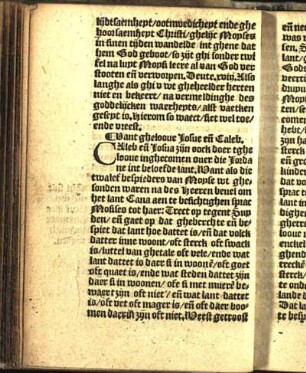 lijdtsaemheyt/ootmoedicheyt ende ghe
hoorsaemheyt Christi/ghelijc Moyses
in sinen tijden wandelde int ghene dat
hem God geboot/so zijt ghi sonder twi
fel na lupt Moysi leere al van God ver
stooten eñ verworpen. Deute. xviij. Also
langhe als ghi v tot gheheelder herten
niet en bekeert/ na vermeldinghe des
goddelijcken waerheyts/ alst vaeken
geseyt is/hierom so waect/siet wel toe/
ende vreest.
Want gheloove Josue eñ Caleb.
CAleb eñ Josua zijn oock doer tghe
loove inghecomen ouer die Jorda
ne int beloefde lant. Want als die
twalef bespieders van Moyse wt ghe
sonden waren na des Heeren beuel om
het lant Cana aen te besichtighen sprac
Moises tot haer: Treet op tegent Zuy
den/ eñ gaet op dat gheberchte eñ be
spiet dat lant hoe dattet is/ eñ dat volck
datter inne woont/oft sterck oft swack
is/luttel van ghetale oft vele/ende wat
lant dattet is daer si in woonē/oft goet
oft quaet is/ende wat steden dattet zijn
daer si in woonen/ oft si met muerē be
waert zijn oft niet/ eñ wat lant dattet
is/oft vet oft mager is/ eñ oft daer boo
men daerin zijn oft niet, Weest getroost